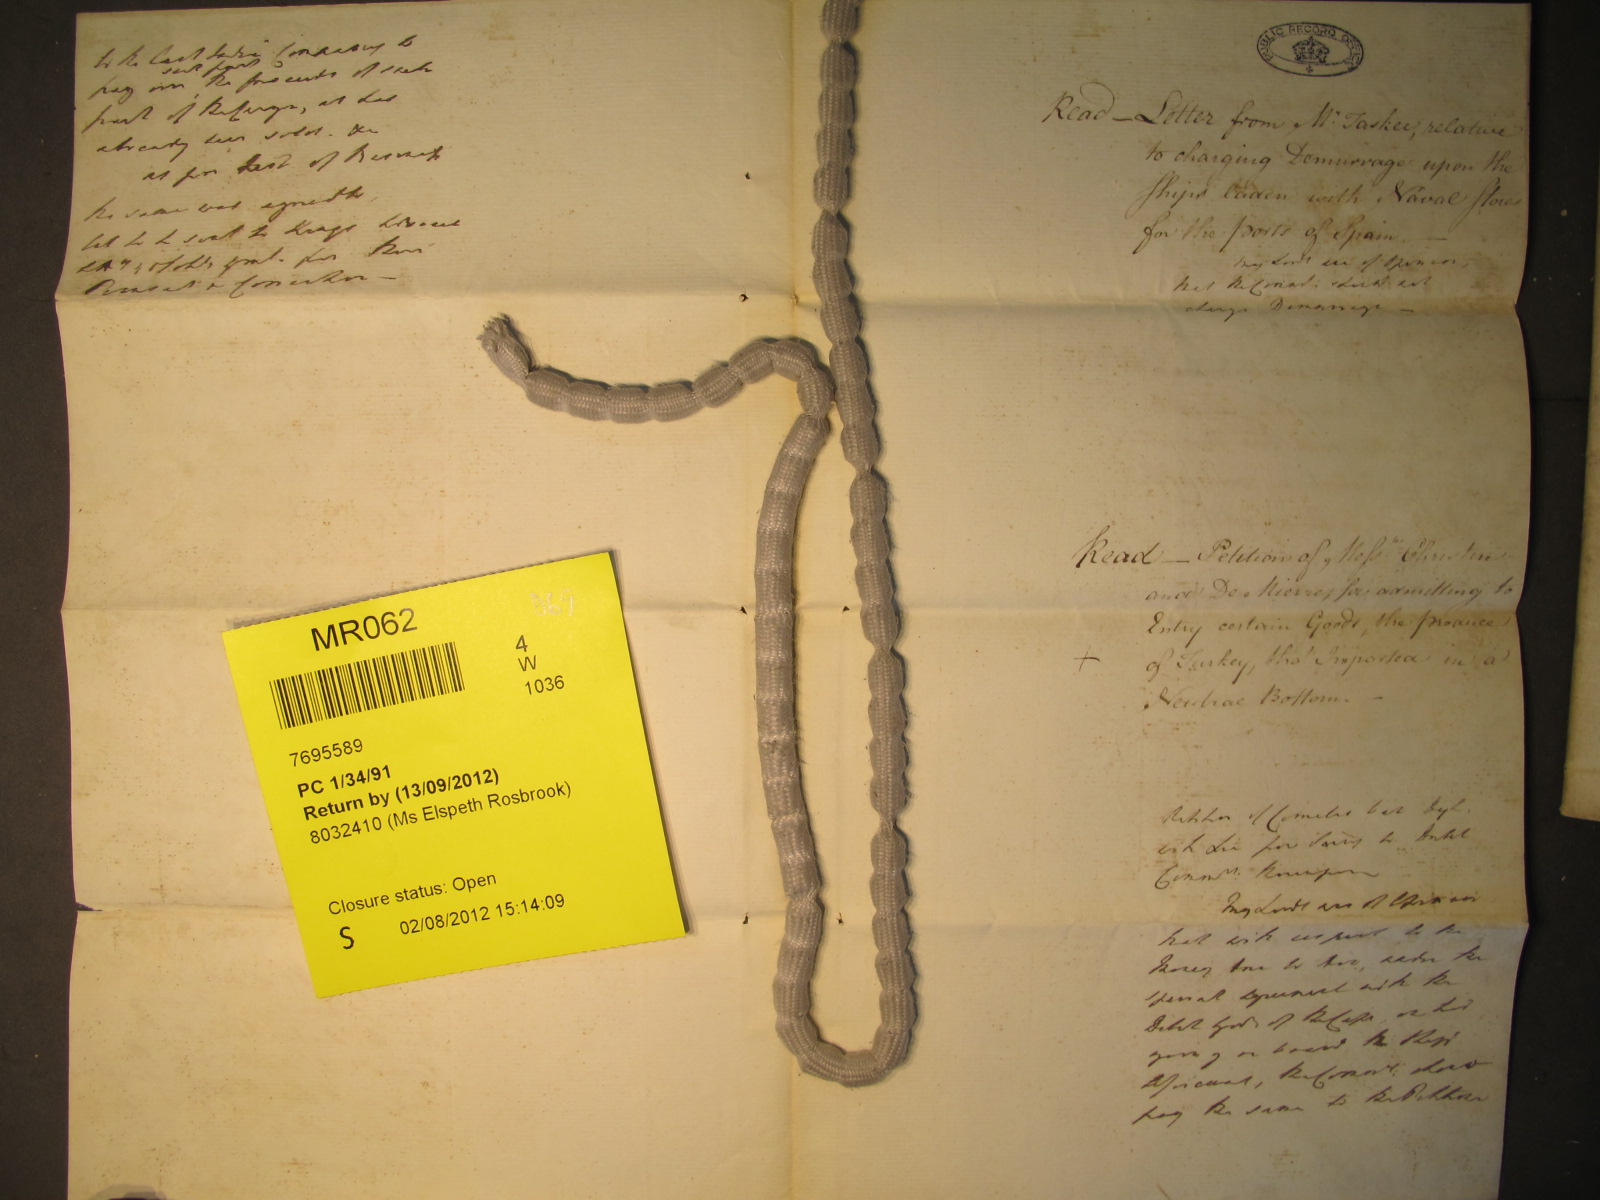 to the East India Company to
such part
pay over the proceeds of such
part of the Cargo, as has
already been sold. &c
as per
the same was agreed to,
PUBLIC RECORD OFFICE
Read – Letter from Mr. Tasker, relative
to charging Demurrage upon the
Ships laden with Naval Stores
for the ports of Spain. –
My Lords are of Opinion,
that the Commrs. should not
charge Demurrage –
Read – Petition of Messrs.
and De for admitting to
Entry certain Goods, the produce
of Turkey, tho' Imported in a
+
Neutral Bottom. –
Petition of Cornelis
for to Dutch
Commrs.
My Lords are of Opinion
that with respect to the
Money due to him, under the
special agreement with the
Dutch Govr. of the Cape, on his
going on board the Ship
the Commrs. should
pay the same to the Petitioner
MR062
369
4
W
1036
7695589
PC 1/34/91
Return by (13/09/2012)
8032410 (Ms Elspeth Rosbrook)
Closure status: Open
S
02/08/2012 15:14:09